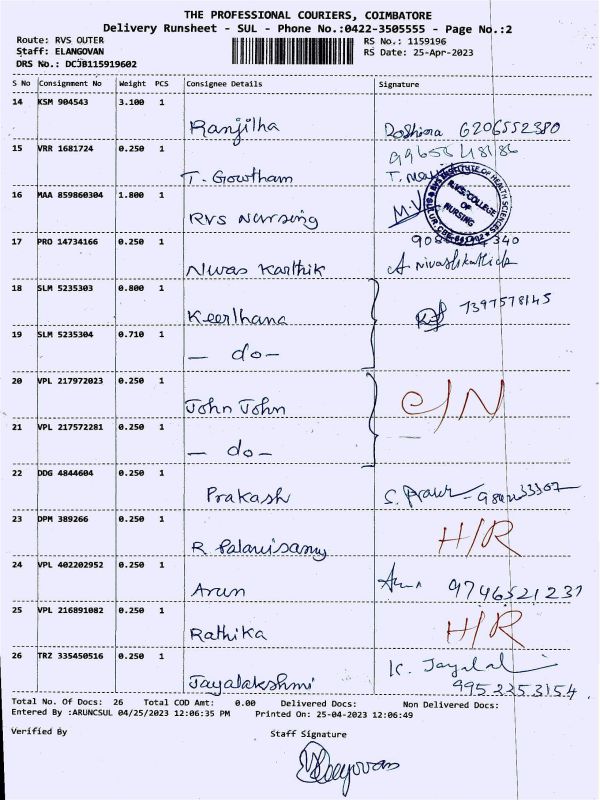 THE PROFESSIONAL COURIERS, COIMBATORE
Delivery Runsheet - SUL - Phone No.:0422-3505555 - Page No.:2
Route: RVS OUTER RS No.: 1159196
Staff: ELANGOVAN RS Date: 25-Apr-2023
DRS No.: DCJB115919602
S No Consignment No Weight PCS Consignee Details Signature
14 KSM 904543 3.100 1
Ranjilha Doshina 6206552380
15 VRR 1681724 0.250 1
T. Gowtham
16 MAA 859860304 1.800 1
RVS Nursing
R.V.S. COLLEGE OF NURSING
17 PRO 14734166 0.250 1
Niwas Karthik A Nivashkathick
18 SLM 5235303 0.800 1
Keerlhana 7397578145
19 SLM 5235304 0.710 1
— do —
20 VPL 217972023 0.250 1
John John C/N
21 VPL 217572281 0.250 1
— do —
22 DDG 4844604 0.250 1
Prakash
23 DPM 389266 0.250 1
R Palanisamy H/R
24 VPL 402202952 0.250 1
Arun 9746521231
25 VPL 216891082 0.250 1
Rathika H/R
26 TRZ 335450516 0.250 1
Jayalakshmi K. Jayalal
9952253154
Total No. Of Docs: 26 Total COD Amt: 0.00 Delivered Docs: Non Delivered Docs:
Entered By :ARUNCSUL 04/25/2023 12:06:35 PM Printed On: 25-04-2023 12:06:49
Verified By Staff Signature